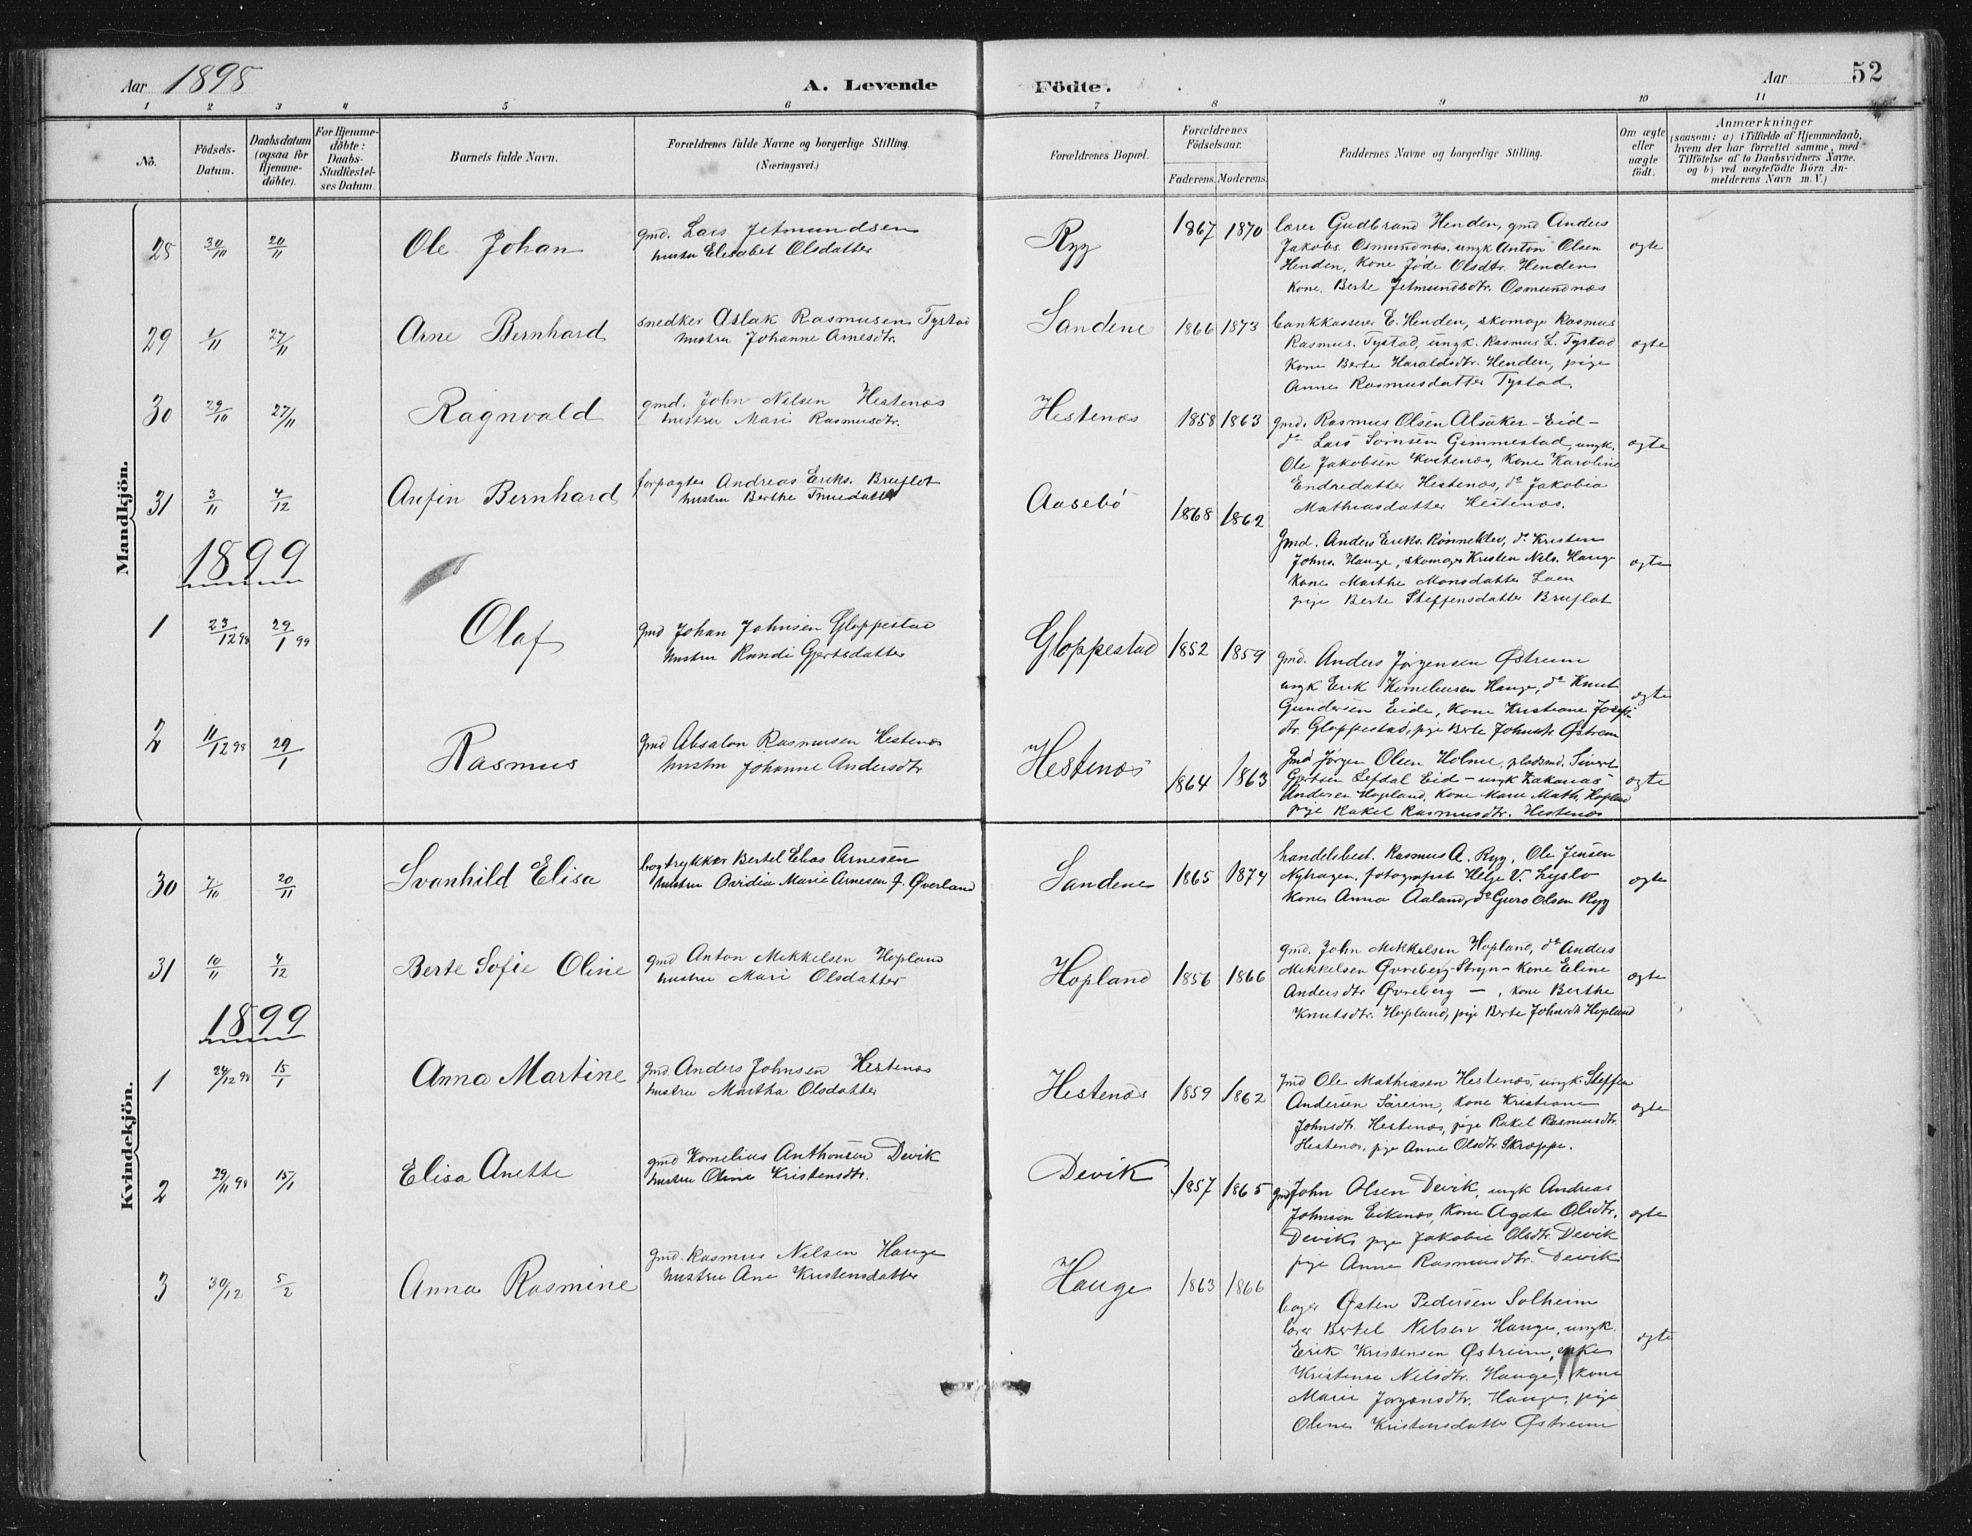 Aar 1898 A. Levende Födte. Aar 52
1 2 3 4 5 6 7 8 9 10 11
No.
Födsels-Datum.
Daabsdatum (ogsaa for Hjemme-döbte).
For Hjemme-döbte: Daabs-Stadfæstel-ses Datum.
Barnets fulde Navn.
Forældrenes fulde Navne og borgerlige Stilling. (Næringsvei.)
Forældrenes Bopæl.
Forældrenes Födselsaar. Faderens. Moderens.
Faddernes Navne og borgerlige Stilling.
Om ægte eller uægte födt.
Anmærkninger
(saasom: a) i Tilfælde af Hjemmedaab,
hvem der har forrettet samme, med
Tilföielse af to Daabsvidners Navne.
og b) ved uægtefödte Börn An-
melderens Navn m. V.)
Mandkjön.
28 30/10 20/11 Ole Johan
gmd. Lars Jetmundsen
hustru Elisabet Olsdatter
Ryg 1867 1870
lærer Gudbrand Henden, gmd Anders
Jakobs. Osmundnæs, ungk Anton Olsen
Henden, Kone Jøde Olsdtr. Henden
Kone Berte Jetmundsdtr. Osmundnæs
ægte
29 1/11 27/11 Arne Bernhard
snedker Aslak Rasmusen Tystad
hustru Johanne Arnesdtr.
Sandene 1866 1873
bankkasserer E. Henden, skomager Rasmus
Rasmus. Tystad, ungk. Rasmus L. Tystad
Kone Berte Haraldsdtr. Henden, pige
Anne Rasmusdatter Tystad
ægte
30 29/10 27/11 Ragnvald
gmd. John Nilsen Hestenæs
hustru Mari Rasmusdtr.
Hestenæs 1858 1863
gmd. Rasmus Olsen Alsaker - Eid -
do Lars Sørnsen Gimmestad, ungk.
Ole Jakobsen Hestenæs, Kone Karoline
Endredatter Hestenæs, do Jakobia
Mathiasdatter Hestenæs.
ægte
31 3/11 4/12 Anfin Bernhard
forpagter Andreas Eriks. Bruflot
hustru Berthe
Aasebö 1868 1862
Gmd. Anders Eriks. Rønneklev, do Kristen
Johns. Hauge, skomager Kristen Nils. Hauge
Kone Marthe Monsdatter Loen
pige Berte Steffensdatter Bruflot
ægte
1899
1 23/12 98 29/1 99 Olaf
gmd Johan Johnsen Gloppestad
hustru Randi Gjertsdatter
Gloppestad 1852 1859
gmd. Anders Jörgensen Østreim
ungk Erik Korneliusen Hauge, do Knut
Gundersen Eide, Kone Kristiane Josep-
dtr. Gloppestad, pige Berte Johnsdtr Østreim
ægte
2 11/12 98 29/1 Rasmus
gmd Absalon Rasmusen Hestenæs
hustru Johanne Andersdtr
Hestenæs 1864 1863
gmd Jørgen Olsen Holme, pladsmd. Sivert
Gjertsen Lefdal Eid - ungk Zakarias
Andersen Hopland, Kone Marie Math. Hopland
pige Rakel Rasmusdtr. Hestenæs
ægte
Kvindekjön.
30 7/10 20/11 Svanhild Elisa
bogtrykker Bertel Elias Arnesen
hustru Ovidia Marie Arnesen f. Øverland
Sandene 1865 1874
handelsbest. Rasmus A. Ryg, Ole Jensen
Nyhagen, fotografist Helje V. Lyslo
Kone Anna Aaland, do Guro Olsen Ryg
ægte
31 10/11 4/12 Berte Sofie Oline
gmd Anton Mikkelsen Hopland
hustru Mari Olsdatter
Hopland 1856 1866
gmd. John Mikkelsen Hopland, do Anders
Mikkelsen Øvreberg - Stryn - Kone Eline
Andersdtr Øvreberg - , Kone Berthe
Knutsdtr. Hopland, pige Berte Johnsdt Hopland
ægte
1899
1 24/12 98 15/1 Anna Martine
gmd Anders Johnsen Hestenæs
hustru Martha Olsdatter
Hestenæs 1859 1862
gmd Ole Mathiasen Hestenæs, ungk. Steffen
Andersen Søreim, Kone Kristiane
Johnsdtr. Hestenæs, pige Rakel Rasmusdtr.
Hestenæs, pige Anne Olsdtr. Skrøppe.
ægte
2 29/11 98 15/1 Elisa Anette
gmd Kornelius Anthonsen Devik
hustru Oline Kristensdtr.
Devik 1857 1865
gmd John Olsen Devik, ungk Andreas
Johnsen Eikenæs, Kone Agate Olsdtr.
Devik, pige Jakobie Olsdtr. Devik
pige Anne Rasmusdtr. Devik
ægte
3 30/12 5/2 Anna Rasmine
gmd. Rasmus Nilsen Hauge
hustru Ane Kristensdatter
Hauge 1863 1866
bager Østen Pedersen Solheim
lærer Bertel Nilsen Hauge, ungk.
Erik Kristensen Østreim, enke
Kristense Nilsdtr. Hauge, Kone
Marie Jørgensdtr. Hauge, pige
Oline Kristensdatter Østreim
ægte